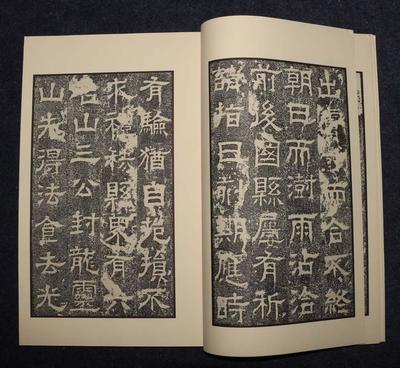 出膚寸而合不終
朝日而澍雨沾洽
前後國縣屢有祈
請指日刻期應時
有驗猶自挹損不
求禮秩縣界有六
名山三公封龍靈
山先得法食去光